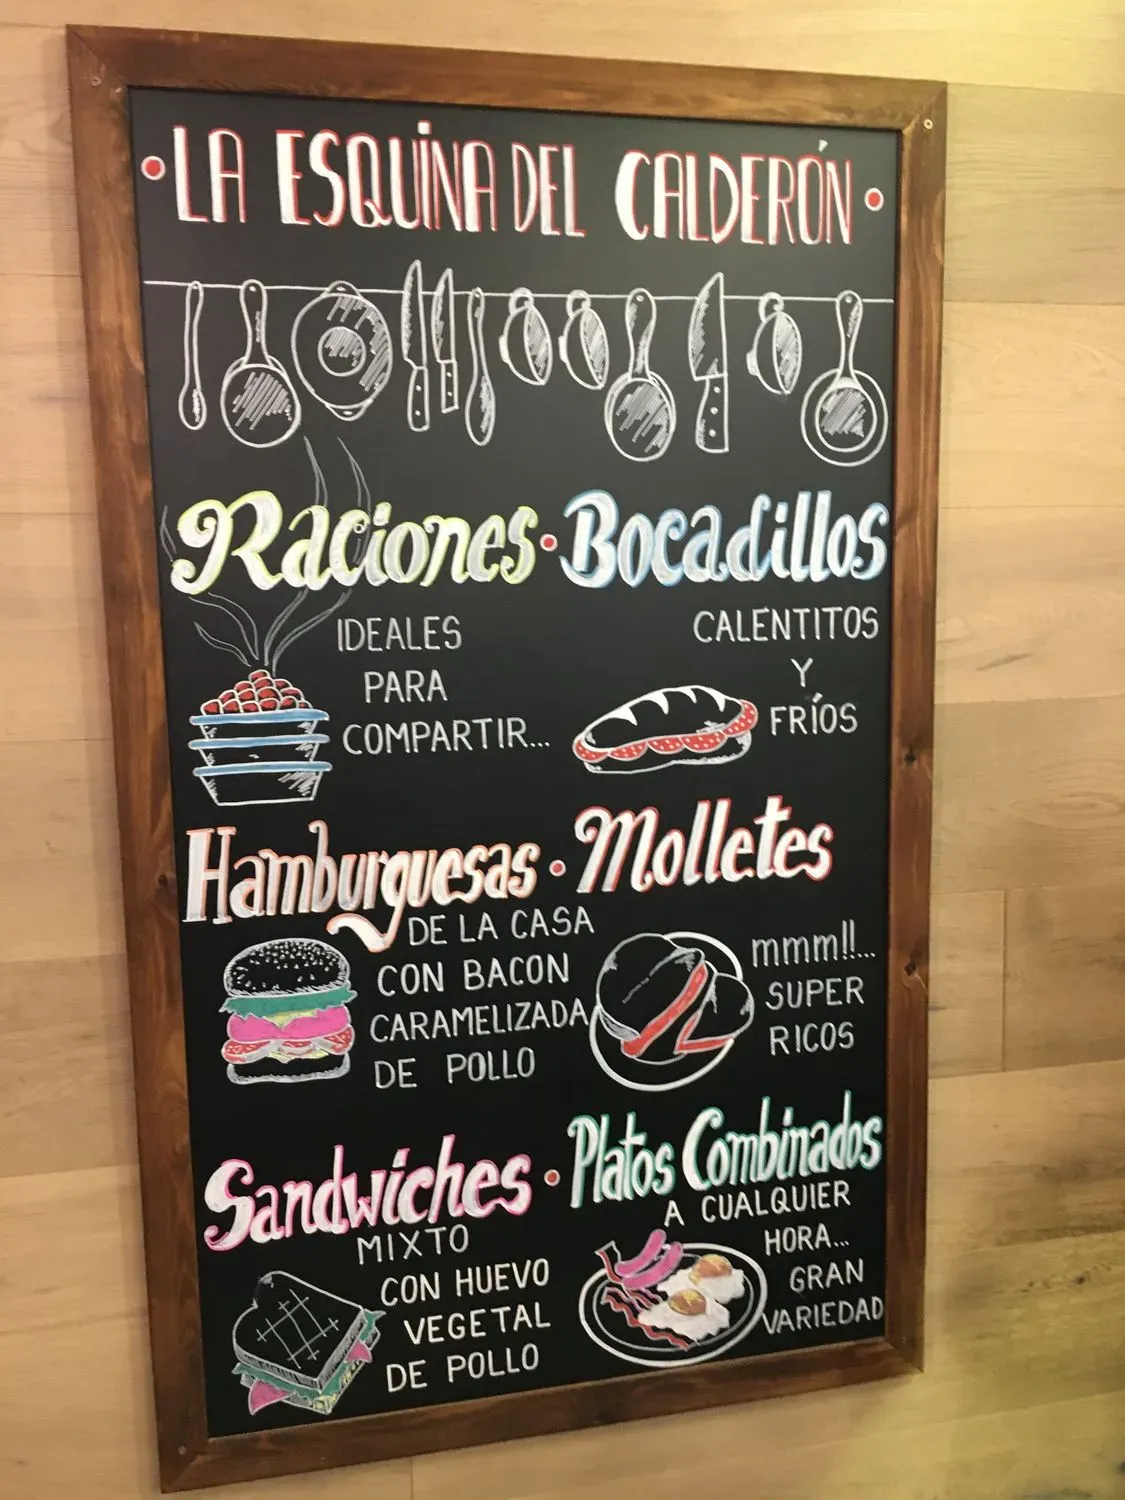 • LA ESQUINA DEL CALDERÓN •
Raciones •
IDEALES
PARA
COMPARTIR...
Bocadillos
CALENTITOS
Y
FRÍOS
Hamburguesas •
DE LA CASA
CON BACON
CARAMELIZADA
DE POLLO
Molletes
mmm!!...
SUPER
RICOS
Sandwiches •
MIXTO
CON HUEVO
VEGETAL
DE POLLO
Platos Combinados
A CUALQUIER
HORA...
GRAN
VARIEDAD